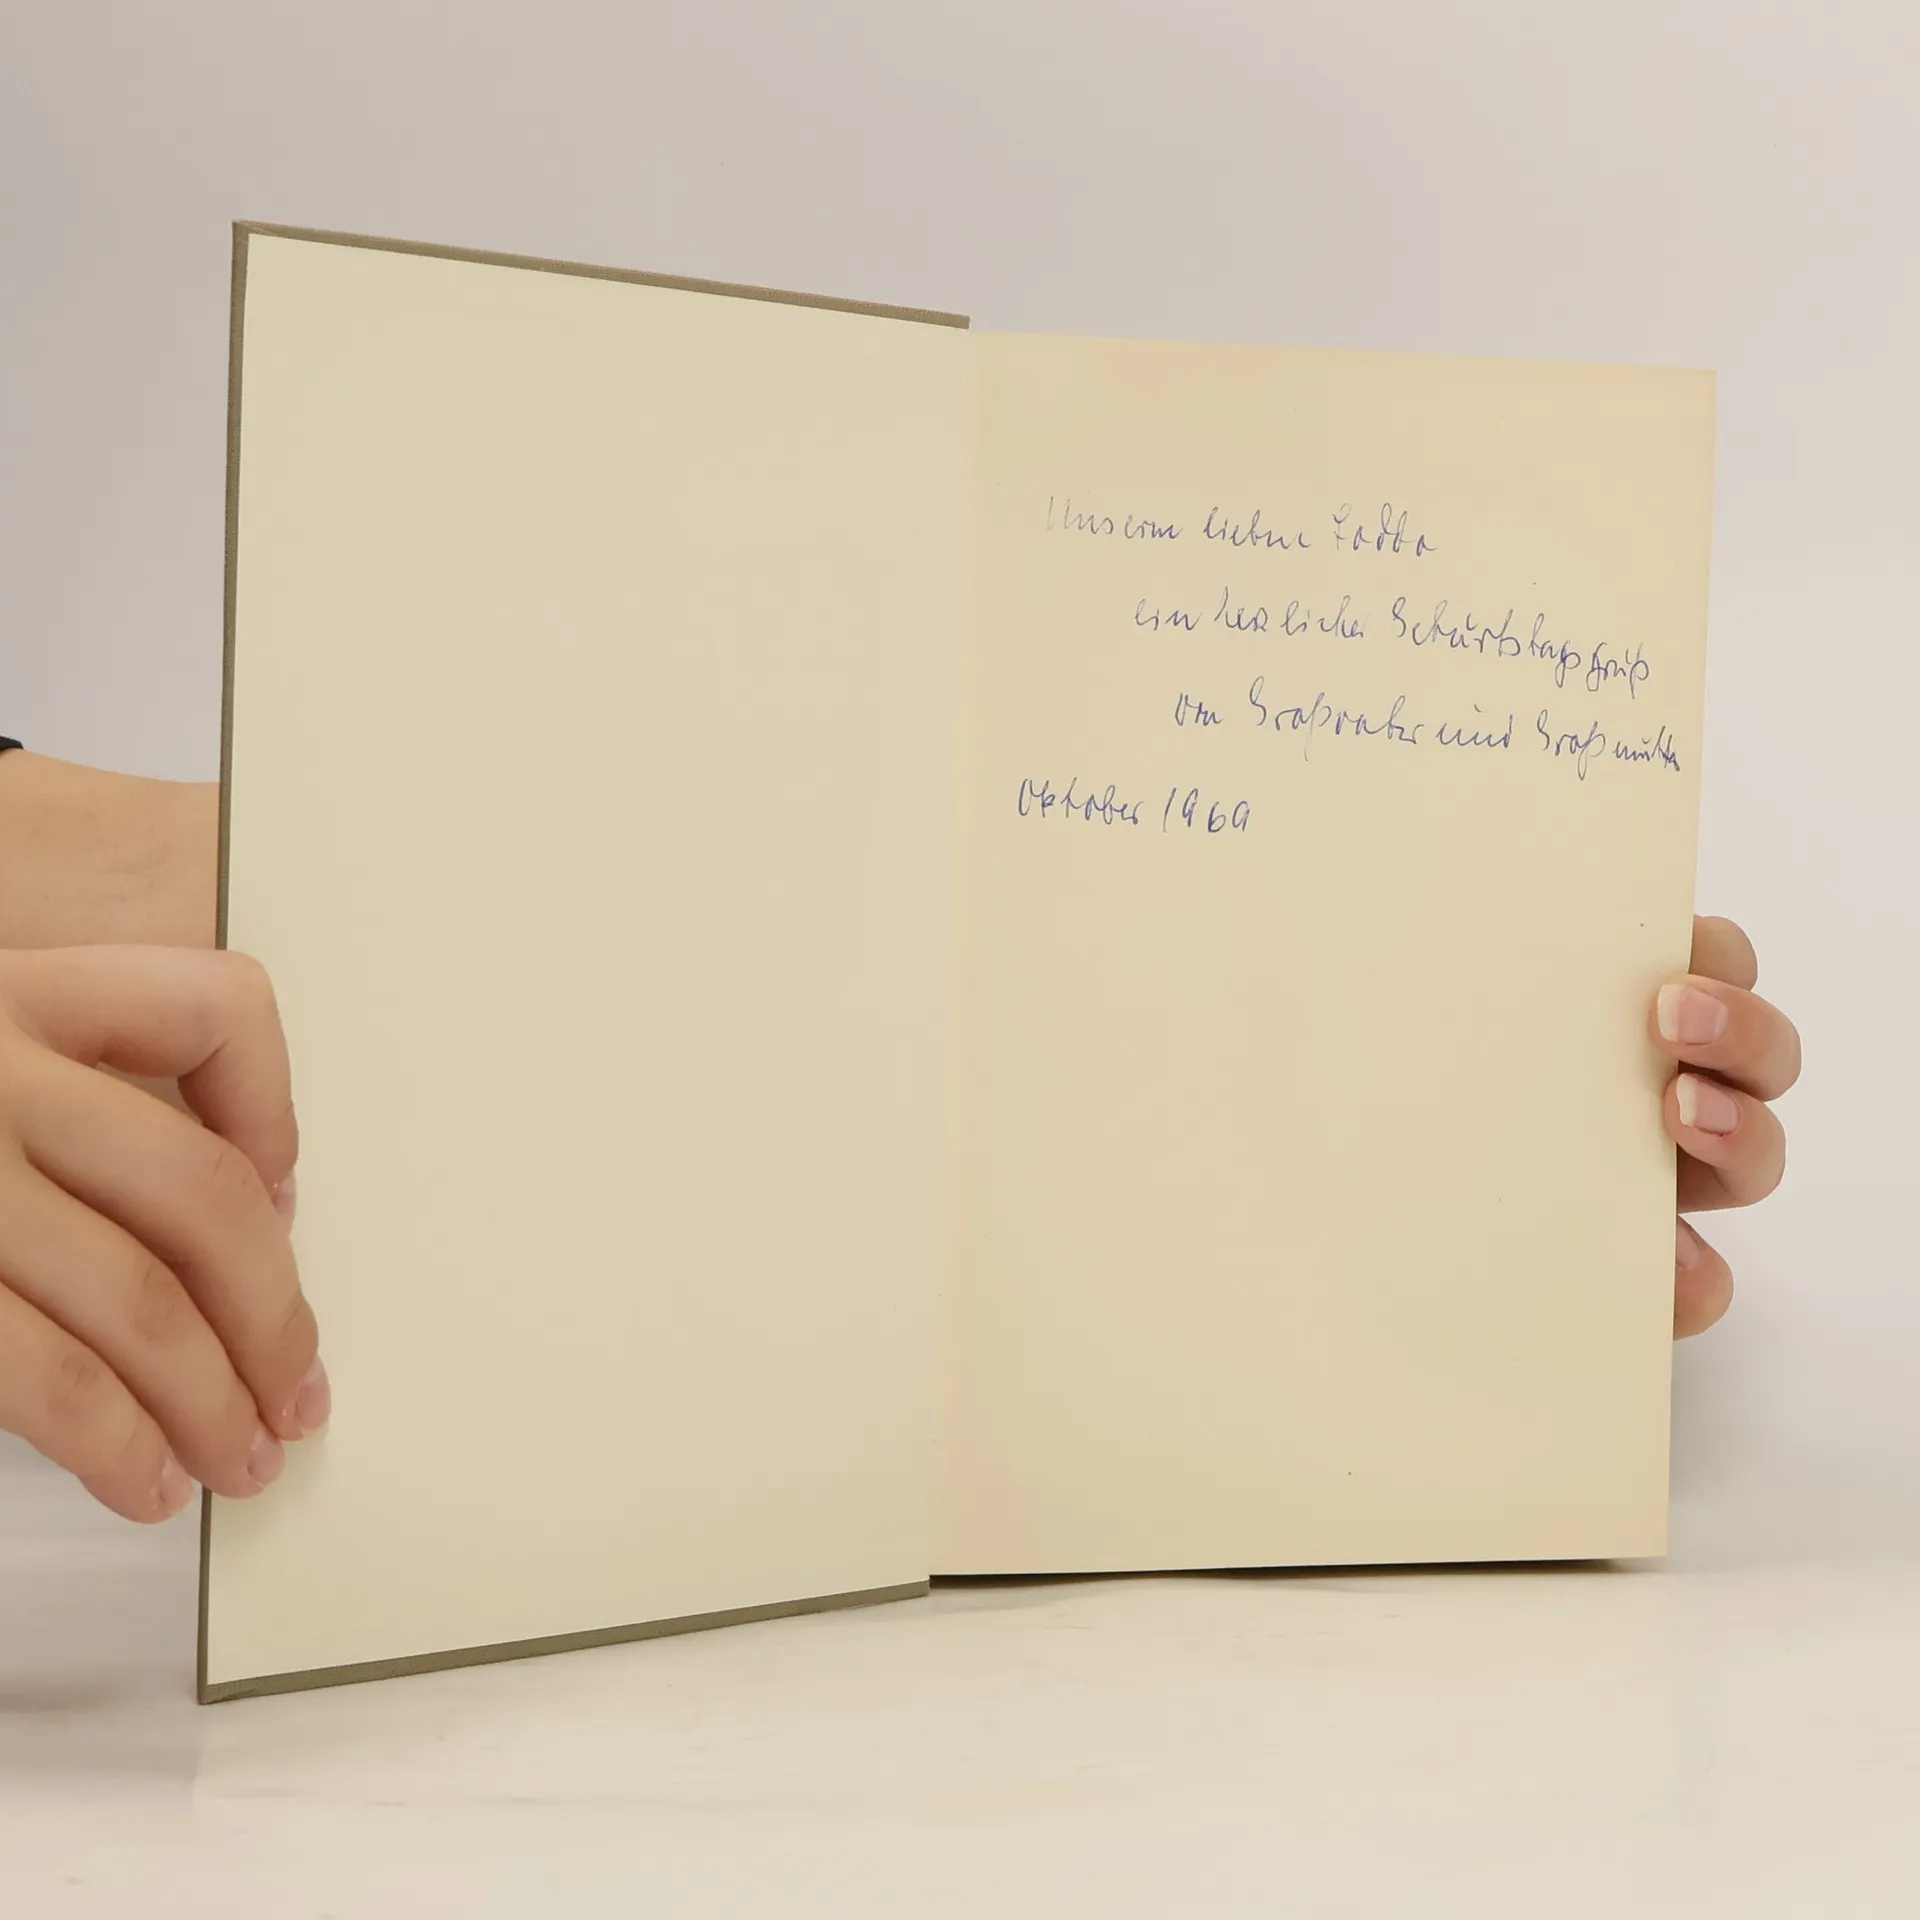 Unserm lieben
ein herzlicher Geburtstagsgruß
von Großvater und Großmutter
Oktober 1969